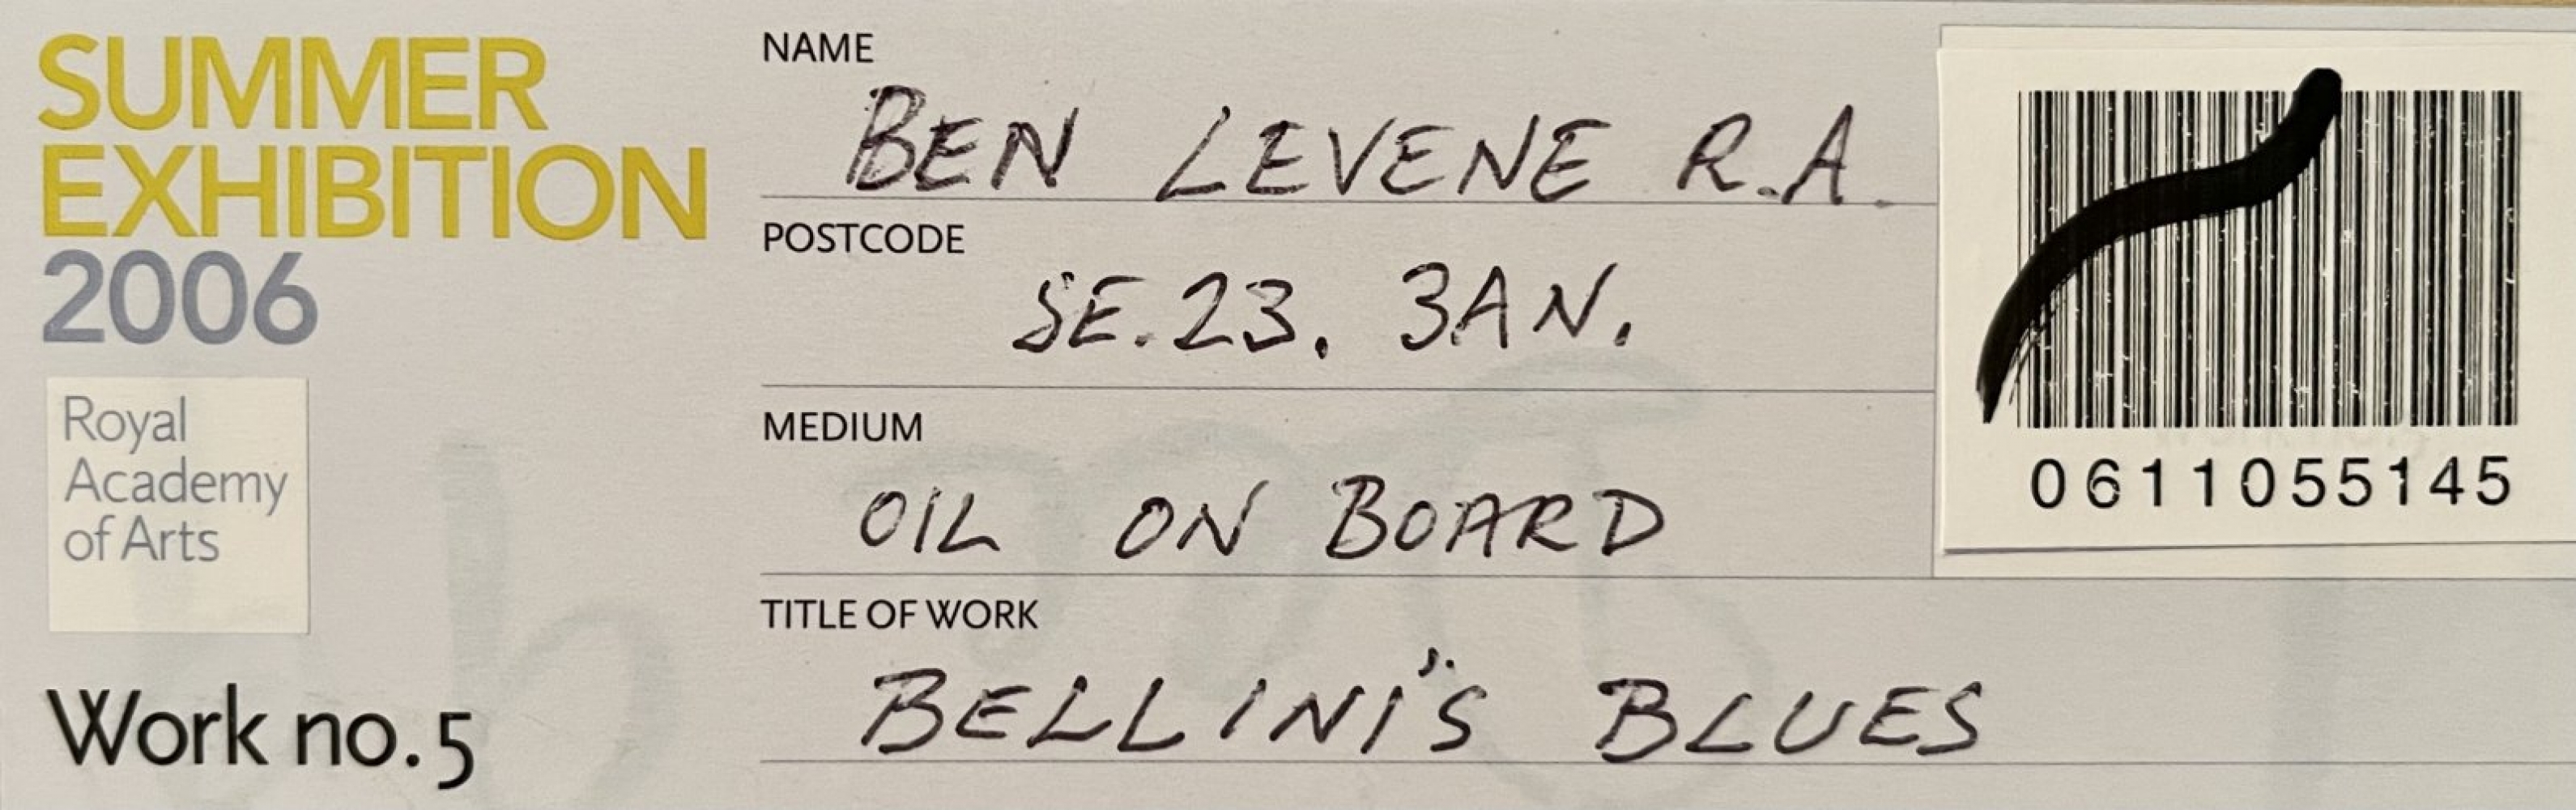 SUMMER
EXHIBITION
2006
Royal
Academy
of Arts
Work no. 5
NAME
BEN LEVENE R.A.
POSTCODE
SE.23. 3AN.
MEDIUM
OIL ON BOARD
TITLE OF WORK
BELLINI'S BLUES
0611055145